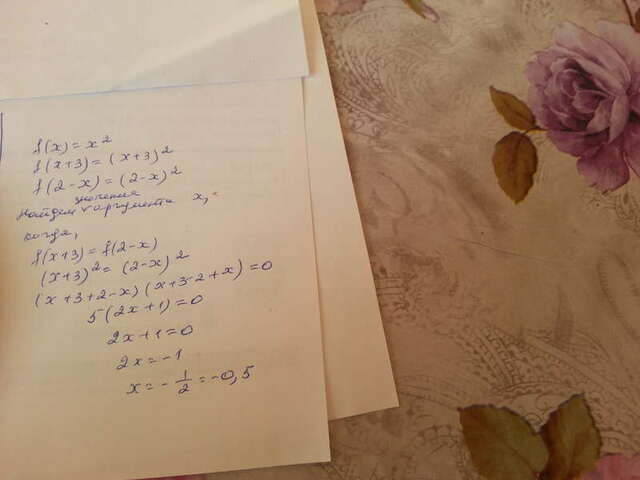 f(x)=x²
f(x+3)=(x+3)²
f(2-x)=(2-x)²
значения
Найдем аргумента x,
когда,
f(x+3)=f(2-x)
(x+3)²=(2-x)²
(x+3+2-x)(x+3-2+x)=0
5(2x+1)=0
2x+1=0
2x=-1
x=-1/2=-0,5